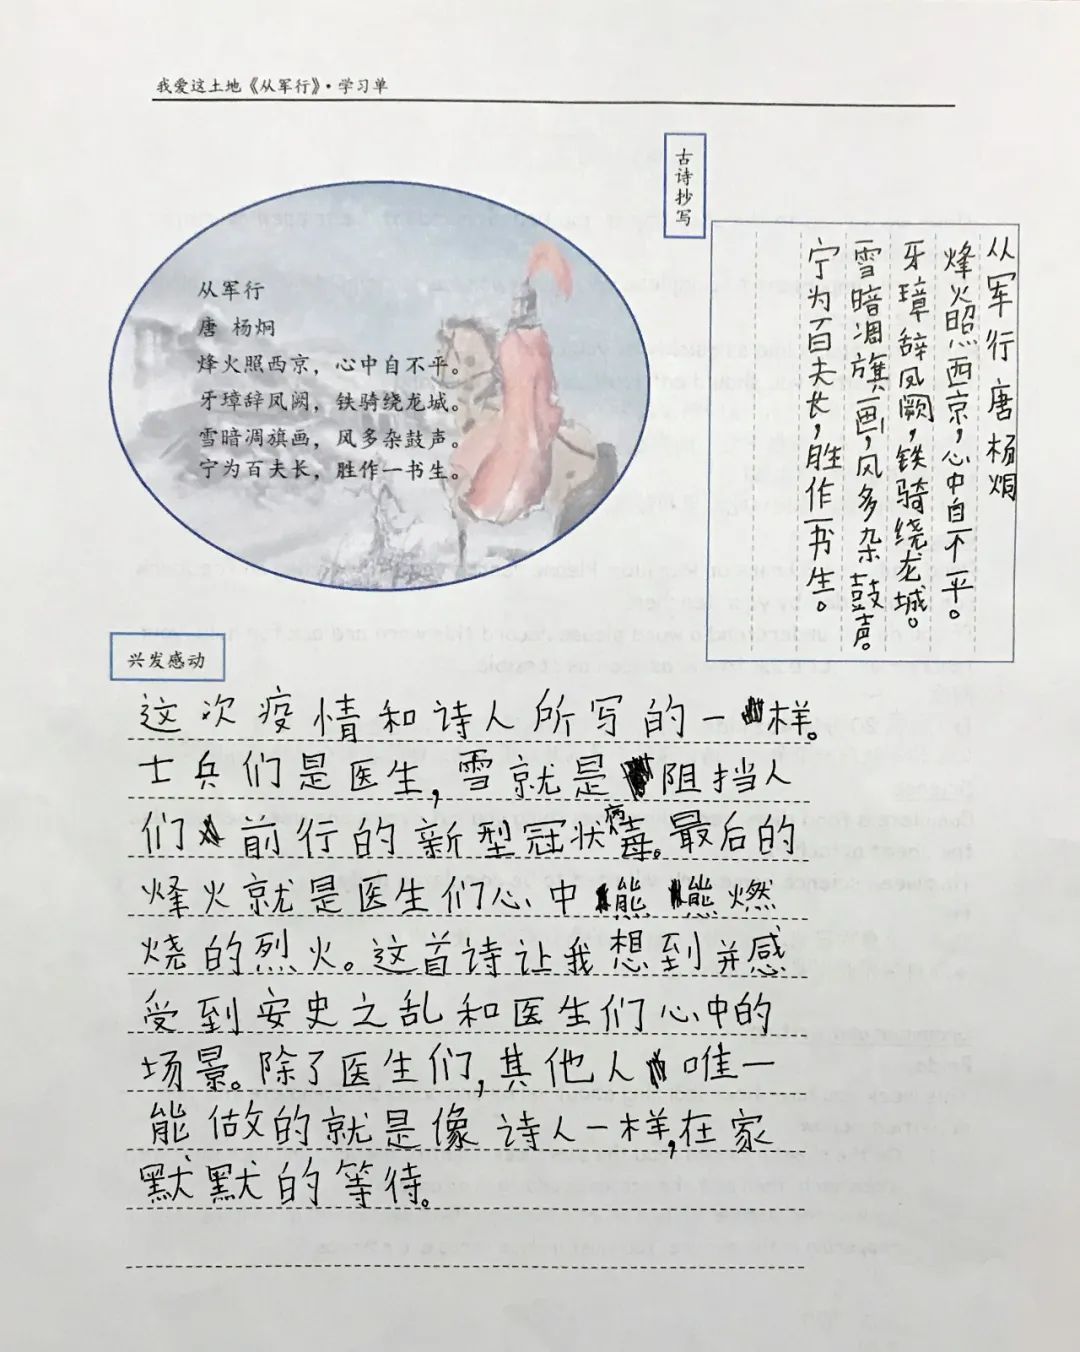 我爱这土地《从军行》·学习单
从军行
唐 杨炯
烽火照西京，心中自不平。
牙璋辞凤阙，铁骑绕龙城。
雪暗凋旗画，风多杂鼓声。
宁为百夫长，胜作一书生。
古诗抄写
从军行 唐 杨炯
烽火照西京，心中自不平。
牙璋辞凤阙，铁骑绕龙城。
雪暗凋旗画，风多杂鼓声。
宁为百夫长，胜作一书生。
兴发感动
这次疫情和诗人所写的一样。
士兵们是医生，雪就是阻挡人
们前行的新型冠状病毒。最后的
烽火就是医生们心中熊熊燃
烧的烈火。这首诗让我想到并感
受到安史之乱和医生们心中的
场景。除了医生们，其他人唯一
能做的就是像诗人一样，在家
默默的等待。